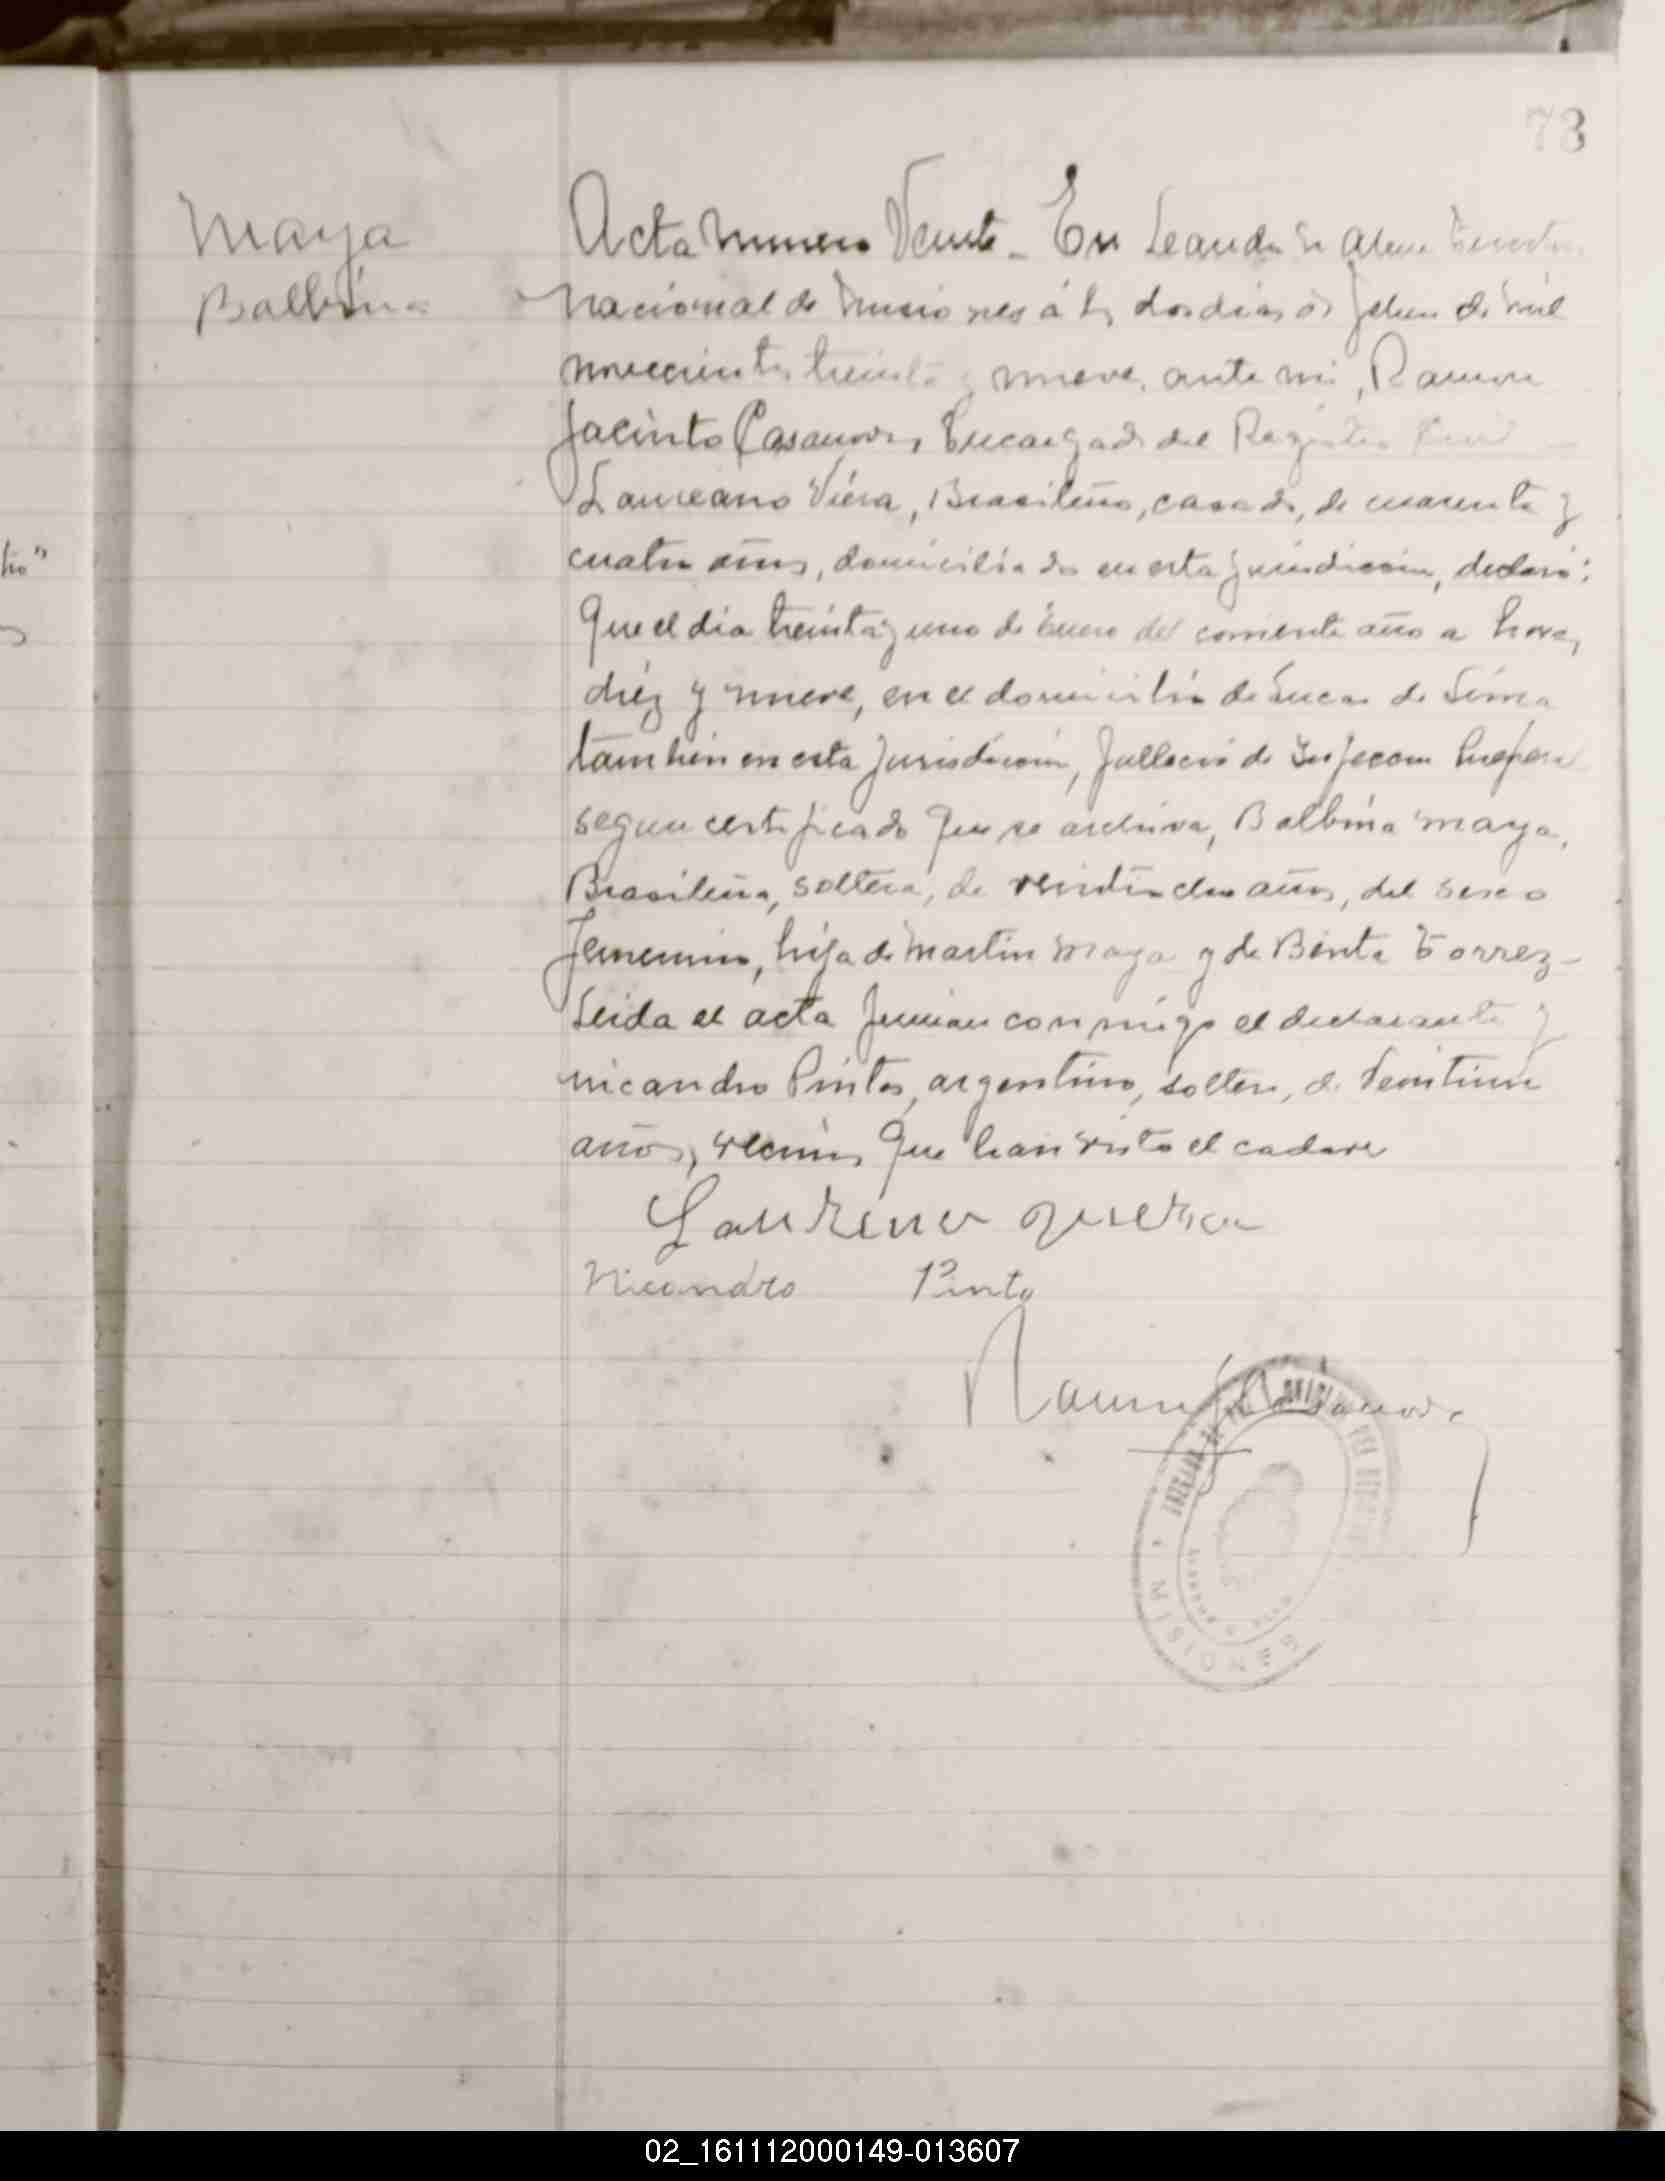 73
Maya
Balbina
Acta numero Veinte. En Leandro N Alem Territorio
Nacional de Misiones á los dos dias de febrero de mil
novecientos treinta y nueve, ante mi, Ramon
Jacinto Casanova, Encargado del Registro Civil
Laureano Viera, Brasileño, casado, de cuarenta y
cuatro años, domiciliado en esta jurisdiccion, declaró:
Que el dia treinta y uno de Enero del corriente año a horas
diez y nueve, en el domicilio de Lucas de Lima
tambien en esta jurisdiccion, falleció de Infeccion
segun certificado que se archiva, Balbina Maya,
Brasileña, soltera, de años, del sexo
femenino, hija de Martin Maya y de Benta Torrez-
Leida el acta firman conmigo el declarante y
Nicandro Pintos, argentino, soltero, de Veintiun
años, vecinos que han visto el cadaver
Nicandro Pinto
Ramon J Casanova
MISIONES